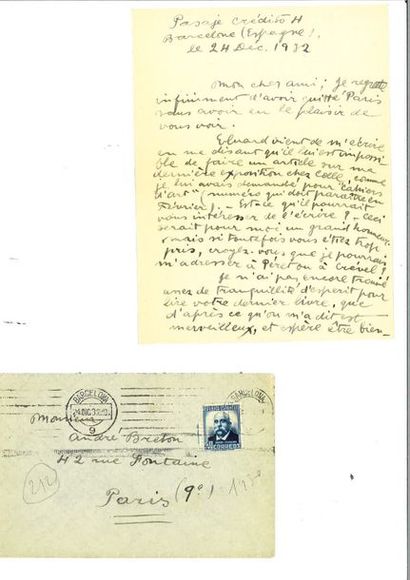 Pasaje Crédito 4
Barcelone (Espagne).
le 24 Déc. 1932
Mon cher ami; Je regrette
infiniment d'avoir quitté Paris
sans avoir eu le plaisir de
vous voir.
Eluard vient de m'écrire
en me disant qu'il lui est impossi
ble de faire un article sur ma
dernière exposition chez Colle, comme
je lui avais demandé pour "Cahiers
d'art" (numéro qui doit paraître en
Février). - Est ce qu'il pourrait
vous intéresser de l'écrire? - Ceci
serait pour moi un grand honneur
mais si toutefois vous êtes trop
pris, croyez-vous que je pourrais
m'adresser à Péret ou à Crevel?
Je n'ai pas encore trouvé
assez de tranquillité d'esprit pour
lire votre dernier livre, que
d'après ce qu'on m'a dit est
merveilleux, et espère être bien-
BARCELONA
9
BARCELONA
CORREOS
Monsieur
André Breton
42 rue Fontaine
Paris (9e)
(212)